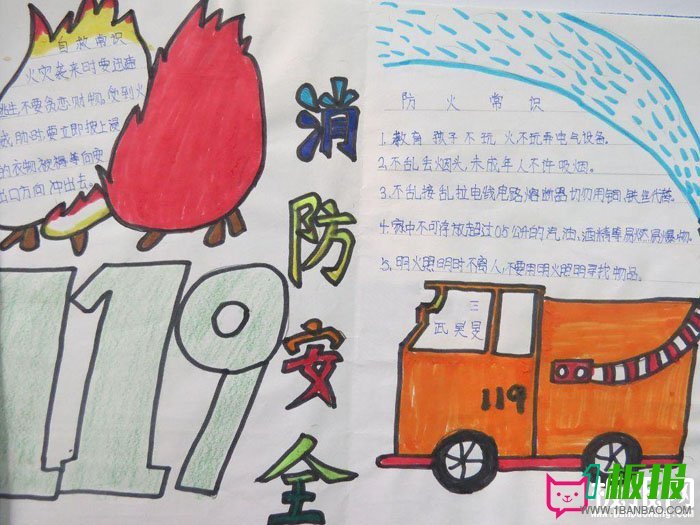 自救常识
火灾袭来时要迅速
逃生,不要贪恋财物,受到火
威胁时,要立即披上浸
的衣物被褥等向安
出口方向冲出去。
119
消防安全
防火常识
1.教育孩子不玩火不玩弄电气设备。
2.不乱丢烟头,未成年人不许吸烟。
3.不乱接乱拉电线电路熔断器切勿用铜、铁丝代替。
4.家中不可存放超过05公升的汽油、酒精等易燃易爆物
5.明火照明时不离人,不要用明火照明寻找物品。
三
武昊旻
119
1板报
WWW.1BANBAO.COM